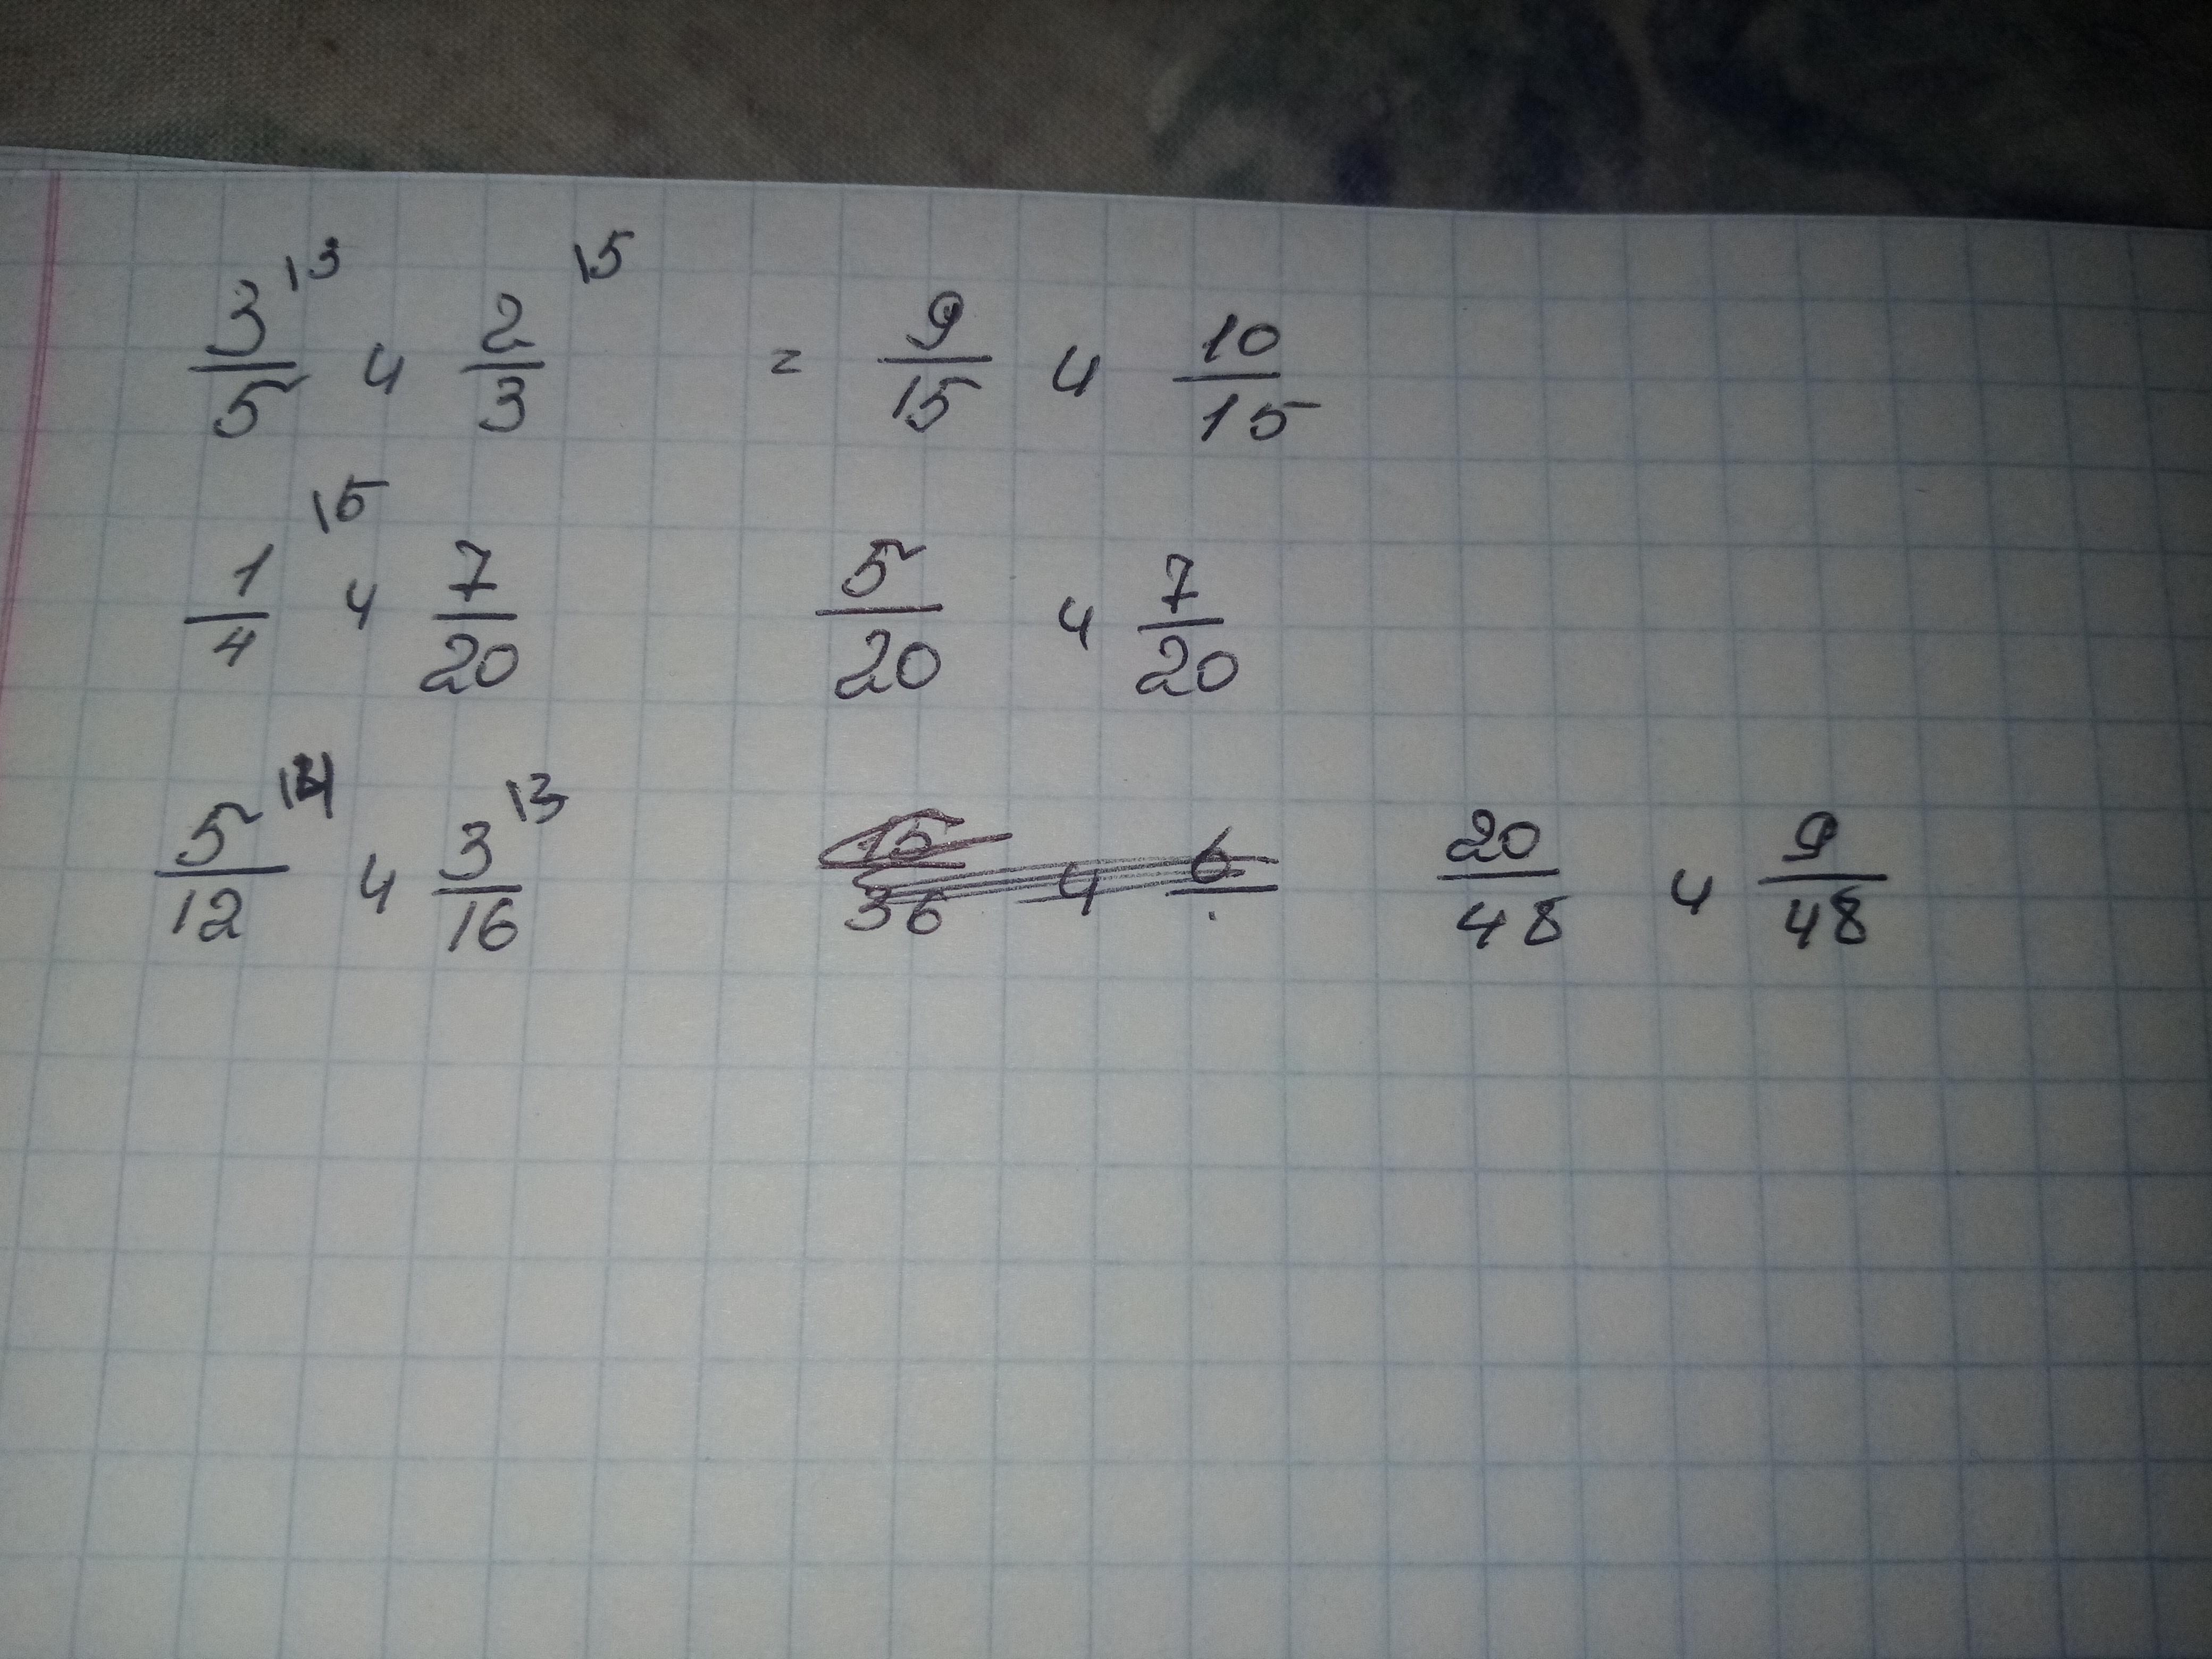 3/5 \3 и 2/3 \5 = 9/15 и 10/15
1/4 \5 и 7/20 5/20 и 7/20
5/12 \4 и 3/16 \3 15/36 и 6 20/48 и 9/48